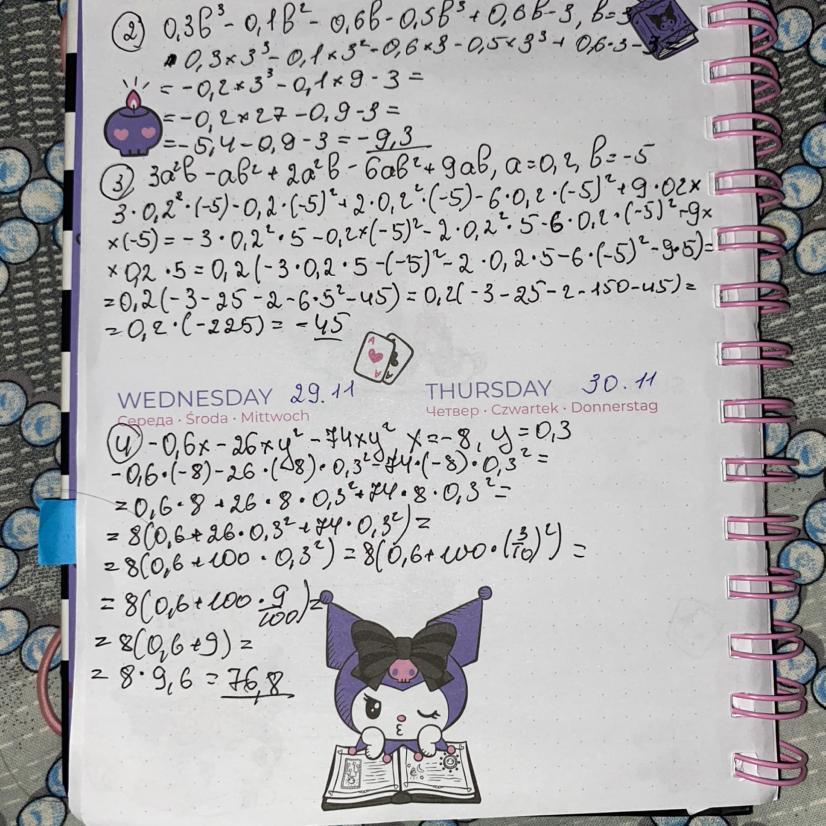 ② 0,3b³ - 0,1b² - 0,6b - 0,5b³ + 0,6b - 3, b = 3
0,3×3³ - 0,1×3² - 0,6×3 - 0,5×3³ + 0,6·3 - 3 =
= -0,2×3³ - 0,1×9 - 3 =
= -0,2×27 - 0,9 - 3 =
= -5,4 - 0,9 - 3 = -9,3
③ 3a²b - ab² + 2a²b - 6ab² + 9ab, a = 0,2, b = -5
3·0,2²·(-5) - 0,2·(-5)² + 2·0,2²·(-5) - 6·0,2·(-5)² + 9·0,2×
×(-5) = -3·0,2²·5 - 0,2×(-5)² - 2·0,2²·5 - 6·0,2·(-5)² - 9×
×0,2·5 = 0,2(-3·0,2·5 - (-5)² - 2·0,2·5 - 6·(-5)² - 9·5) =
= 0,2(-3 - 25 - 2 - 6·5² - 45) = 0,2(-3 - 25 - 2 - 150 - 45) =
= 0,2·(-225) = -45
A
A
WEDNESDAY 29.11
Середа · Środa · Mittwoch
THURSDAY 30.11
Четвер · Czwartek · Donnerstag
④ -0,6x - 26xy² - 74xy² x = -8, y = 0,3
-0,6·(-8) - 26·(-8)·0,3² - 74·(-8)·0,3² =
= 0,6·8 + 26·8·0,3² + 74·8·0,3² =
= 8(0,6 + 26·0,3² + 74·0,3²) =
= 8(0,6 + 100·0,3²) = 8(0,6 + 100·(3/10)²) =
= 8(0,6 + 100·9/100) =
= 8(0,6 + 9) =
= 8·9,6 = 76,8